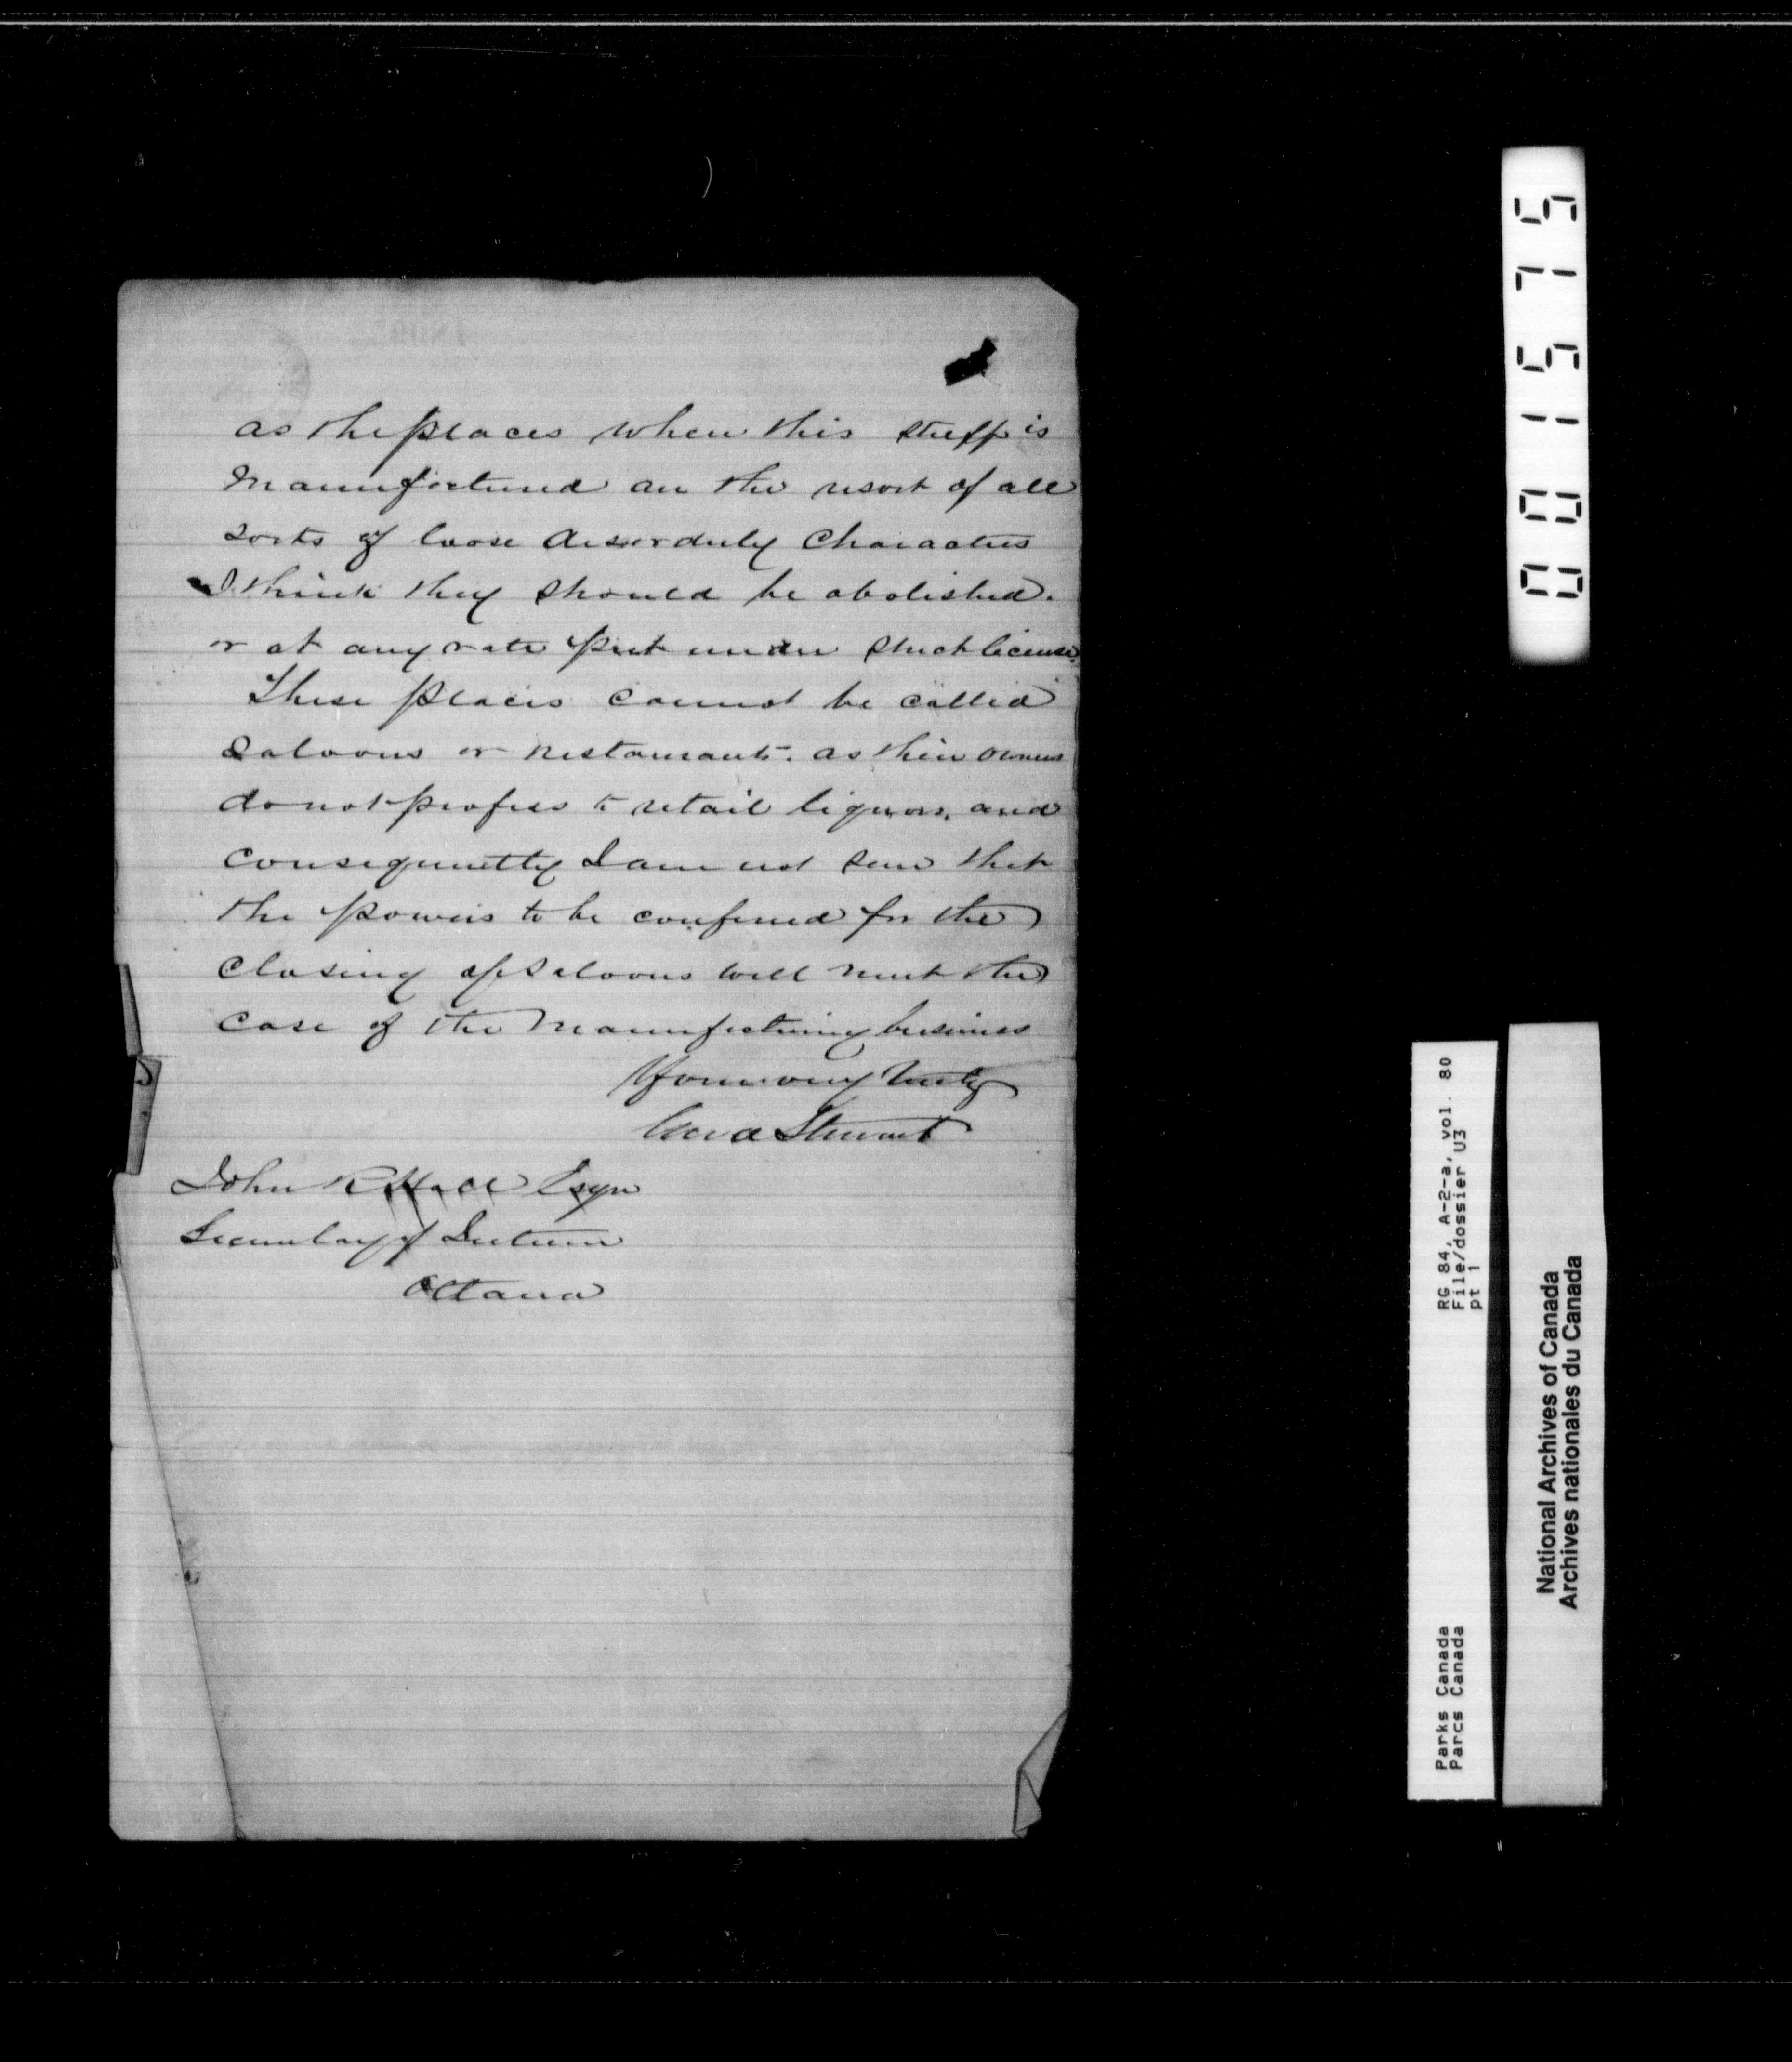 as the places where this stuff is
manufactured are the resort of all
sorts of loose disorderly characters
I think they should be abolished.
or at any rate put under strict license.
These places cannot be called
Saloons or Restaurants. as their owners
do not profess to retail liquors, and
consequently I am not sure that
the powers to be conferred for the
closing of Saloons will meet the
case of the manufacturing business
Yours very truly
Geo A Stewart
John R Hall Esqre
Secretary of Interior
Ottawa
001575
RG 84, A-2-a, vol. 80
File/dossier U3
pt 1
Parks Canada
Parcs Canada
National Archives of Canada
Archives nationales du Canada